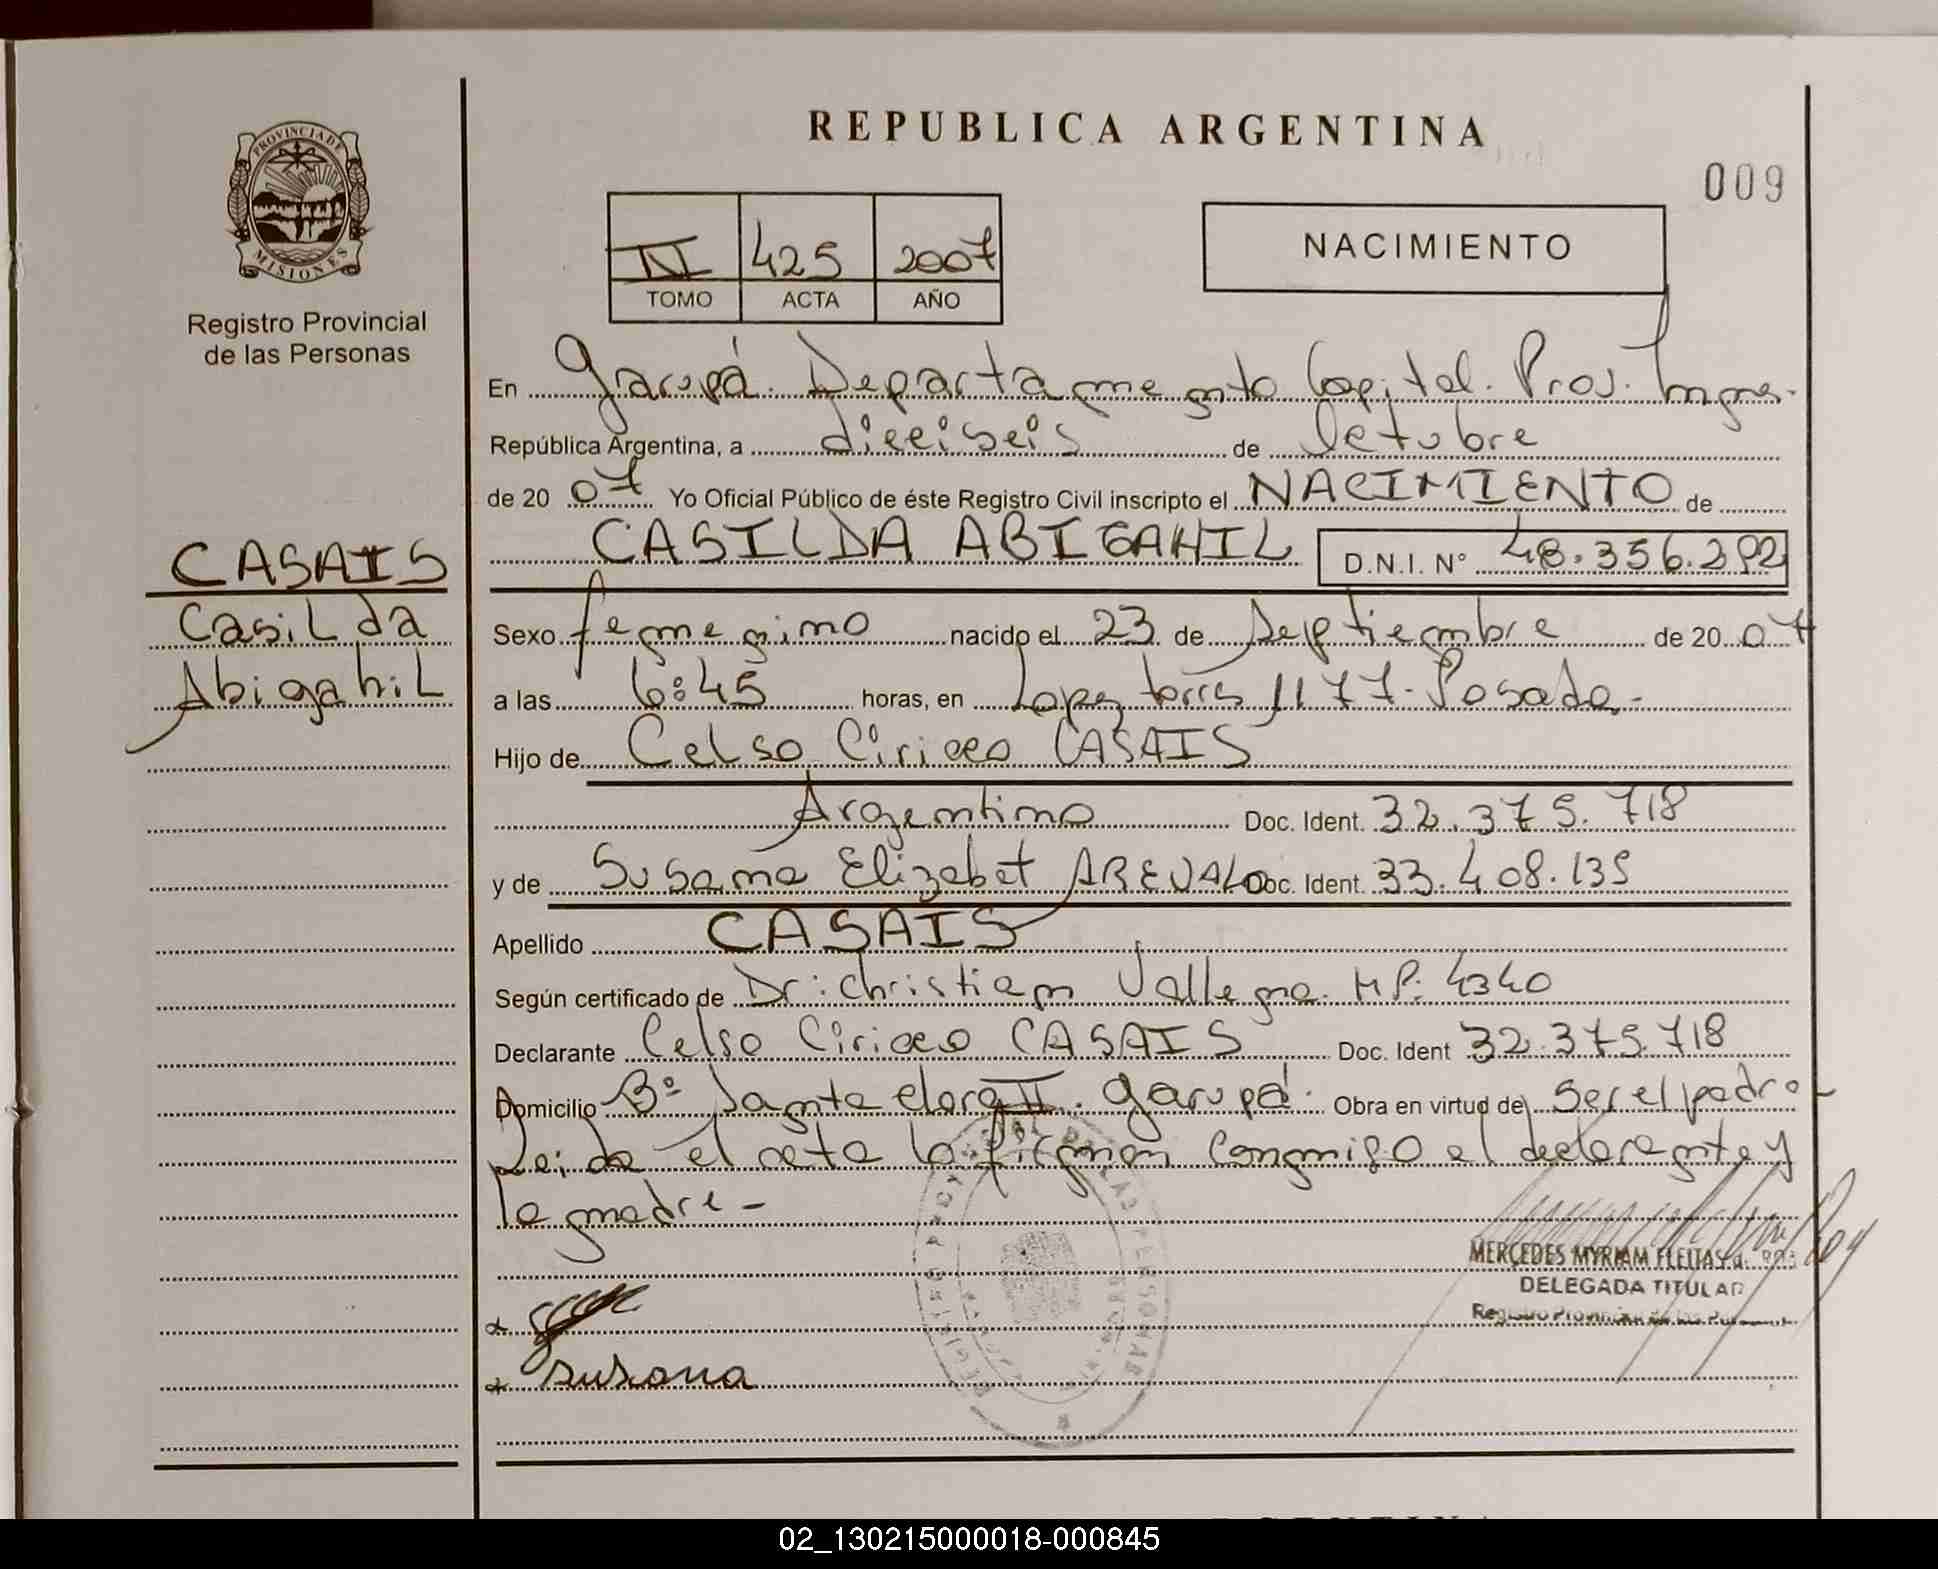 REPUBLICA ARGENTINA
009
PROVINCIA DE
MISIONES
Registro Provincial
de las Personas
425 2007
TOMO ACTA AÑO
NACIMIENTO
En Garupá. Departamento Capital. Prov.
República Argentina, a dieciseis de Octubre
de 20 07 Yo Oficial Público de éste Registro Civil inscripto el NACIMIENTO de
CASILDA ABIGAHIL D.N.I. N° 48.356.292
CASAIS
Casilda
Abigahil
Sexo femenino nacido el 23 de Septiembre de 20 07
a las 6:45 horas, en Lopez torres 1177. Posadas-
Hijo de Celso Ciriaco CASAIS
Argentino Doc. Ident. 32.375.718
y de Susana Elizabet AREVALO Doc. Ident. 33.408.135
Apellido CASAIS
Según certificado de Dr: Christian Vallena. MP: 4340
Declarante Celso Ciriaco CASAIS Doc. Ident 32.375.718
Domicilio B° Santa Clara II. Garupá. Obra en virtud de ser el padre-
Leida el acta la firman conmigo el declarante y
la madre-
MERCEDES MYRIAM FLEITAS d.
DELEGADA TITULAR
Registro Provincial de las
susana
02_130215000018-000845